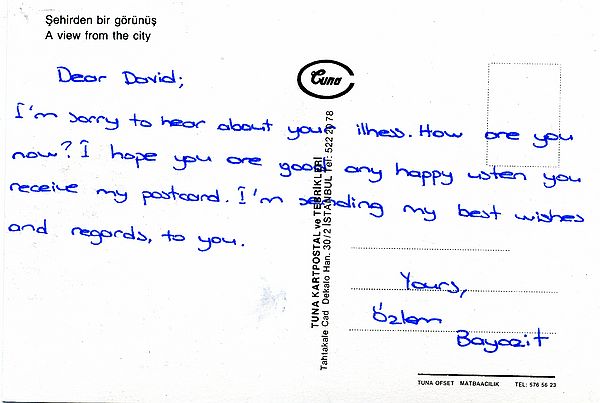 Şehirden bir görünüş
A view from the city
Dear David;
I'm sorry to hear about your illness. How are you
now? I hope you are good any happy usten you
receive my postcard. I'm sending my best wishes
and regards, to you.
Yours,
Özlem
Bayazit
Tuna
TUNA KARTPOSTAL ve TEBRİKLERİ
Tahtakale Cad Dekalo Han. 30/2 İSTANBUL Tel: 522 29 78
TUNA OFSET MATBAACILIK TEL: 576 56 23